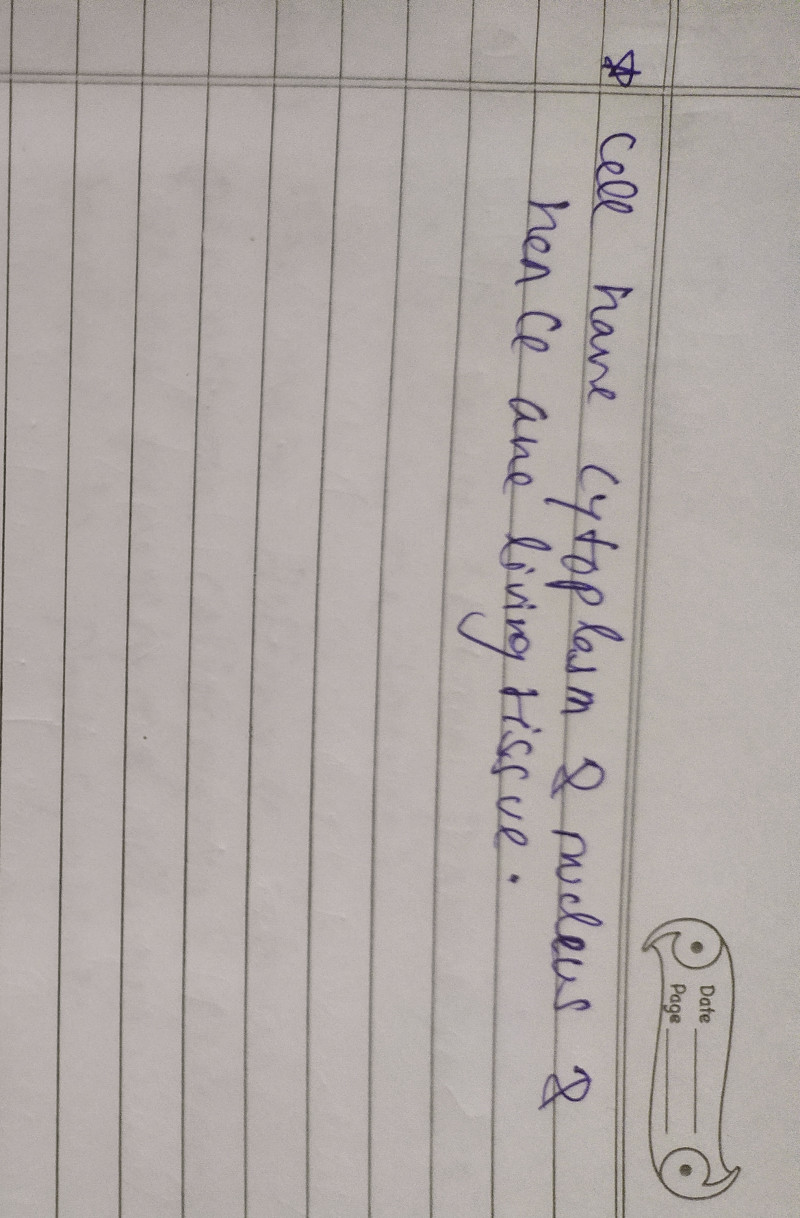 Date
Page
☆ Cell have Cytoplasm & nucleus &
hence are living tissue.